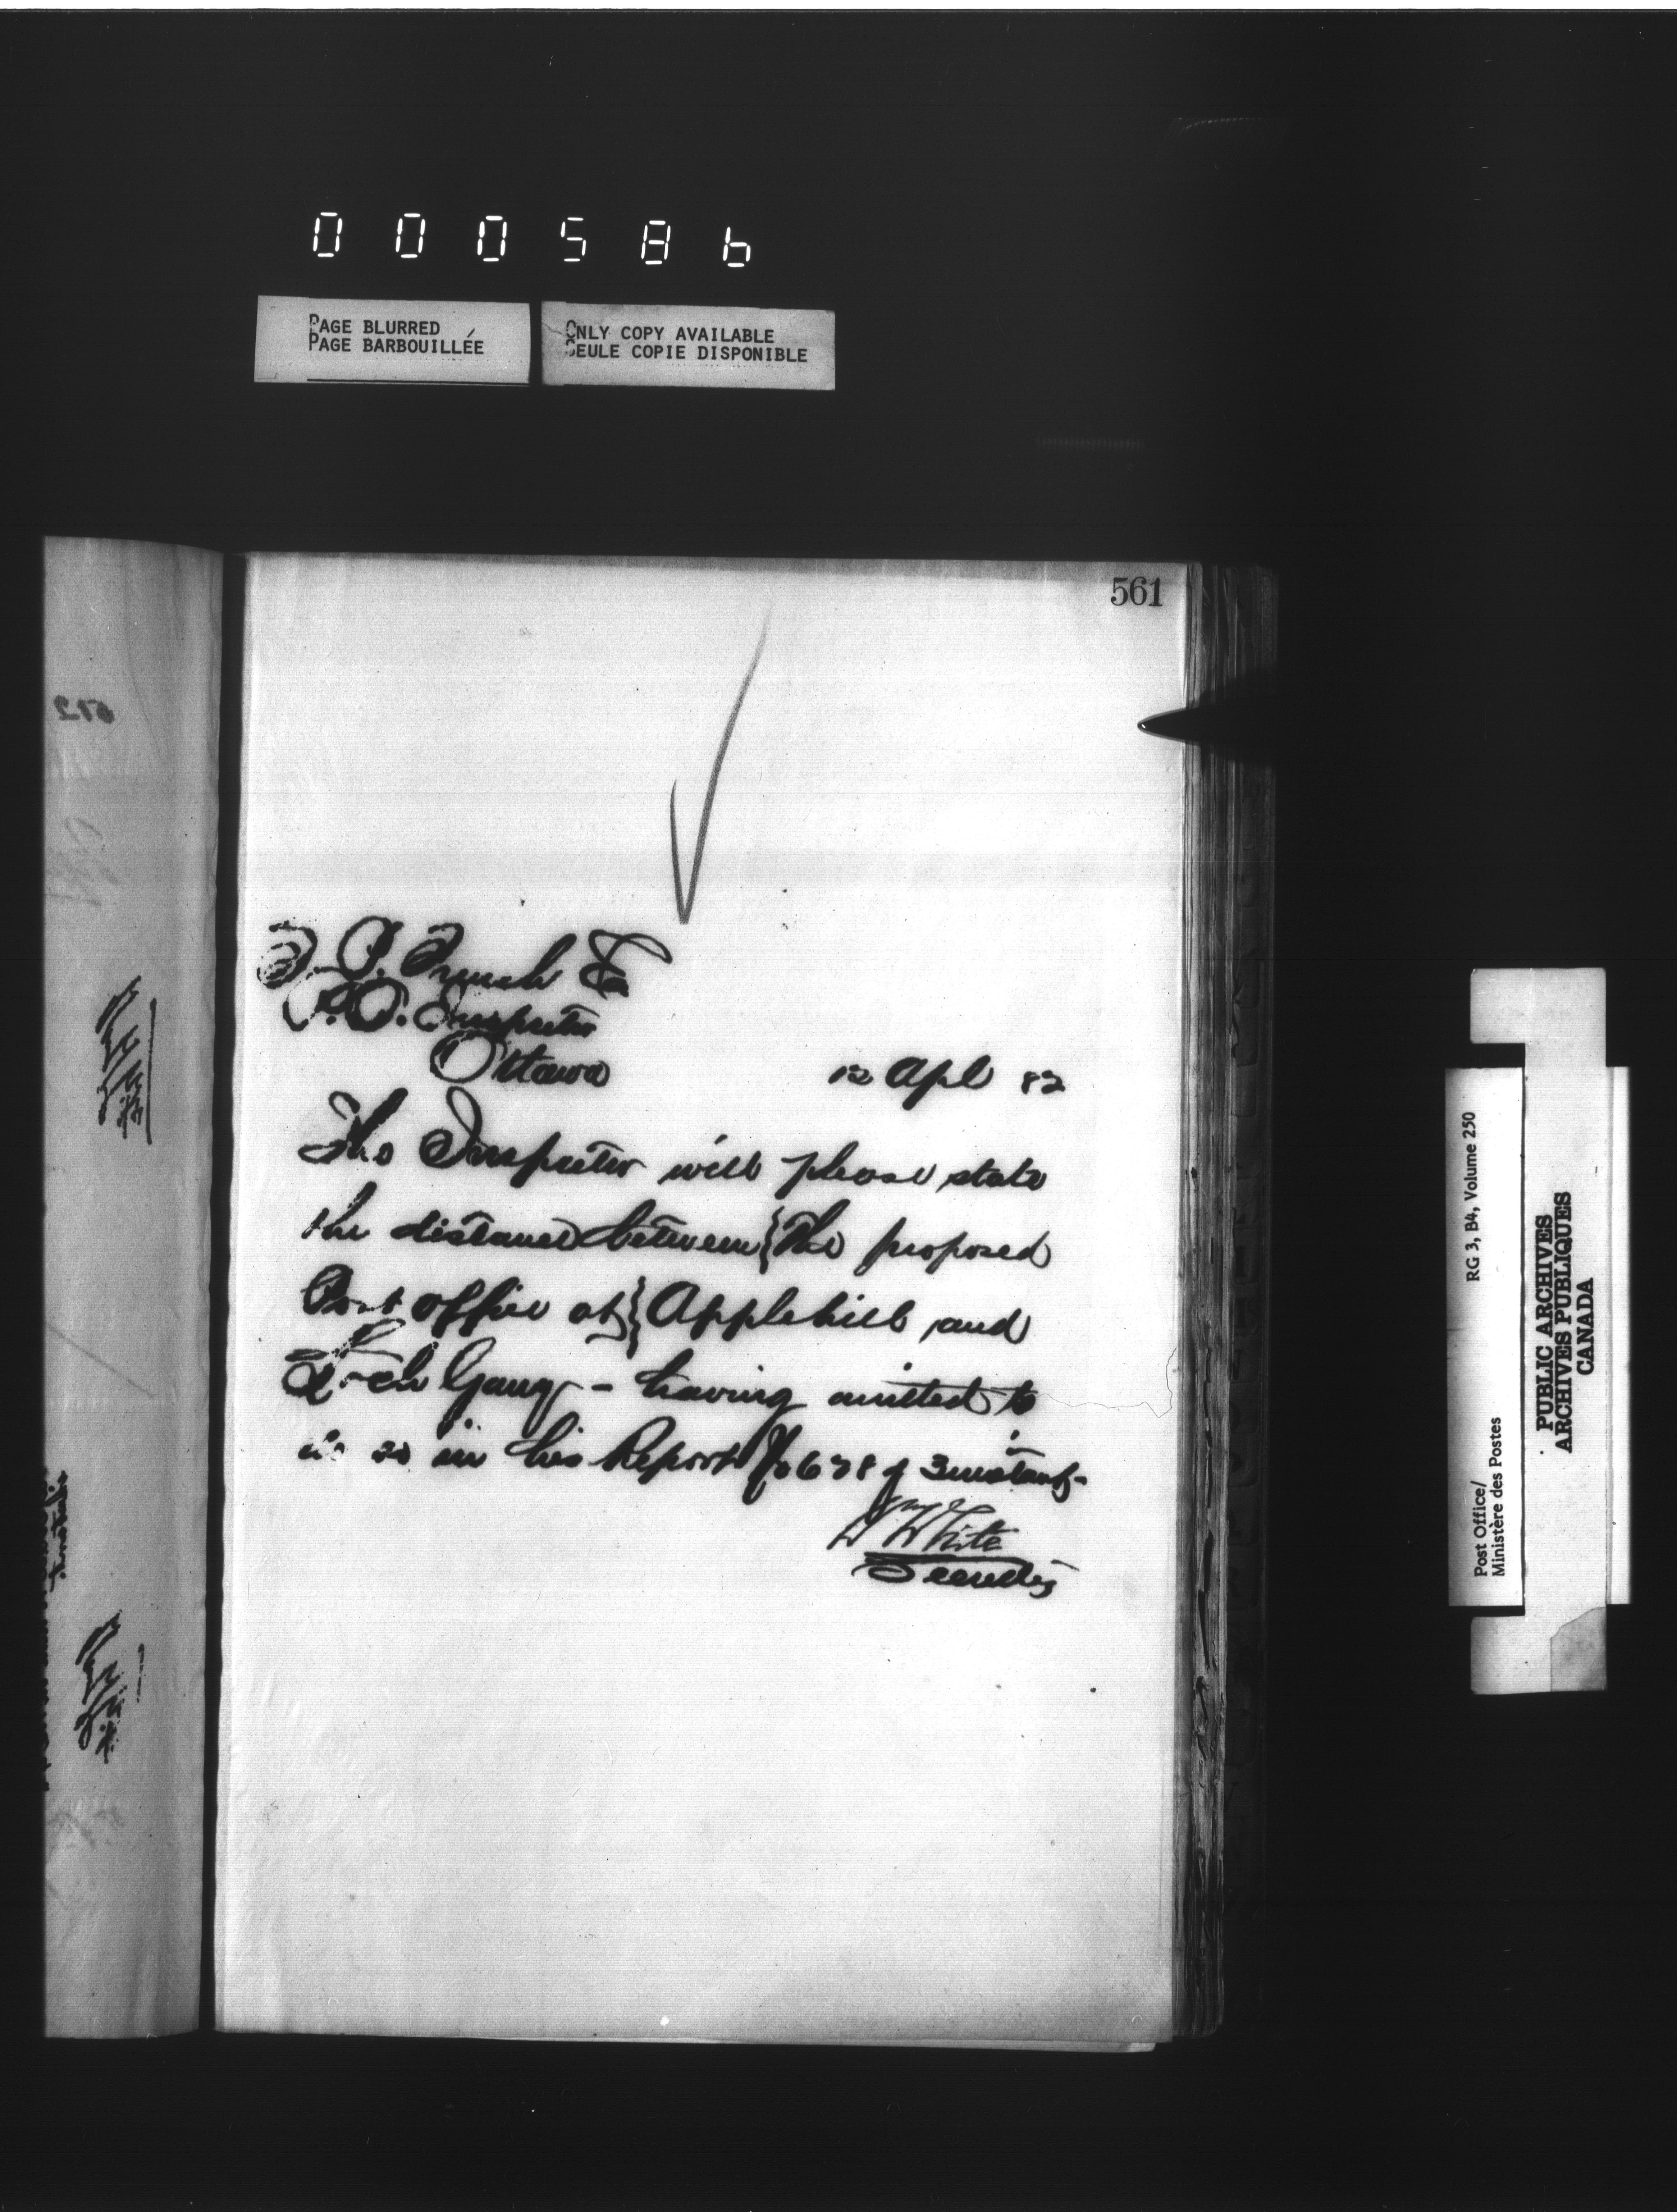 000586
PAGE BLURRED
PAGE BARBOUILLÉE
ONLY COPY AVAILABLE
SEULE COPIE DISPONIBLE
561
T. P. French Esq
P.O. Inspector
Ottawa
12 Apl 82
The Inspector will please state
the distance between { the proposed
Post office at } Applehill and
Loch Garry - having omitted to
do so in his Report No 678 of 3 instant-
Wm White
Secretary
Post Office/
Ministère des Postes
RG 3, B4, Volume 250
PUBLIC ARCHIVES
ARCHIVES PUBLIQUES
CANADA